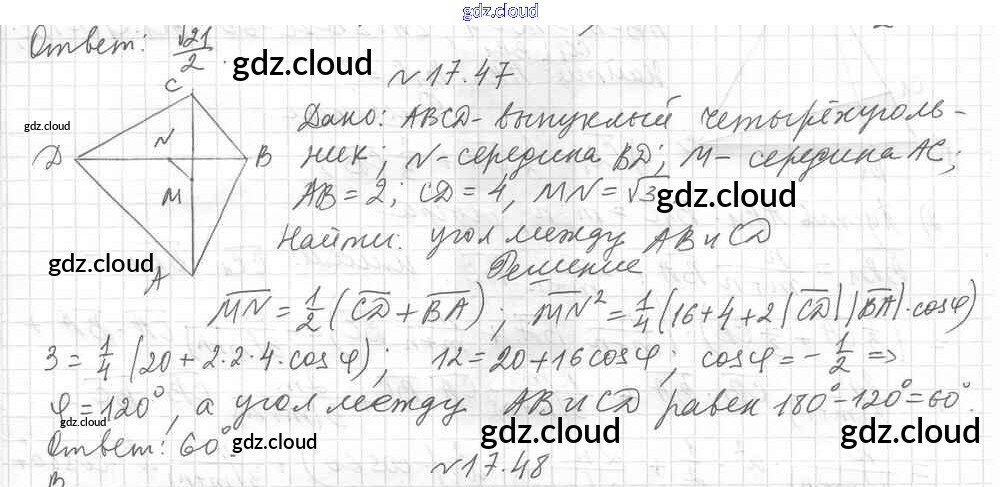 gdz.cloud
Ответ: √21/2.
gdz.cloud
№17.47
C
gdz.cloud
D
N
B
M
A
gdz.cloud
Дано: ABCD - выпуклый четырёхуголь-
ник; N - середина BD; M - середина AC;
AB = 2; CD = 4, MN = √3
gdz.cloud
Найти: угол между AB и CD
Решение
MN = 1/2 (CD + BA); MN² = 1/4 (16+4+2|CD||BA|·cosφ)
3 = 1/4 (20 + 2·2·4·cosφ); 12 = 20 + 16cosφ; cosφ = -1/2 =>
φ = 120°, а угол между AB и CD равен 180° - 120° = 60°.
gdz.cloud
Ответ: 60°.
gdz.cloud
gdz.cloud
gdz.cloud
№17.48
B